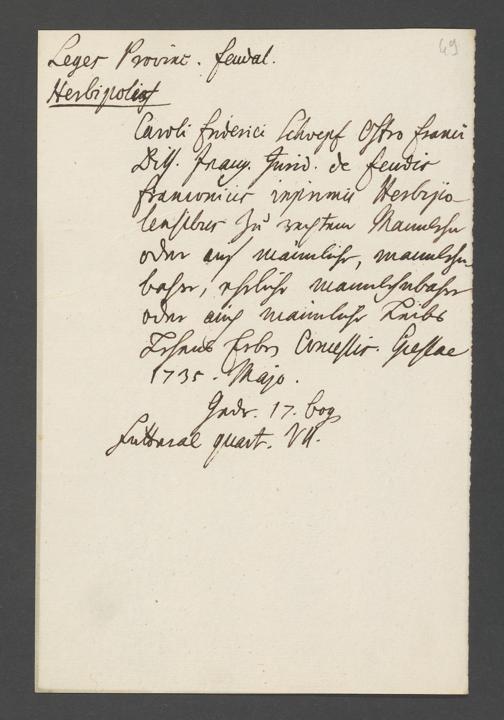 49
Leges Provinc. feudal.
Herbipolens
Caroli Friderici Schoepf Ostro Franci
Diss. Inaug. Jurid. de feudis
Franconicis inprimis Herbipo-
lensibus zu rechtem Mannlehn
oder auf männlich, mannlehn
bahre, ehrlich mannlehnbahre
oder auch männliche Leibs
Lehens Erben Concessis. Gissae
1735. Majo.
Gedr. 17. bog
futteral quart. VII.